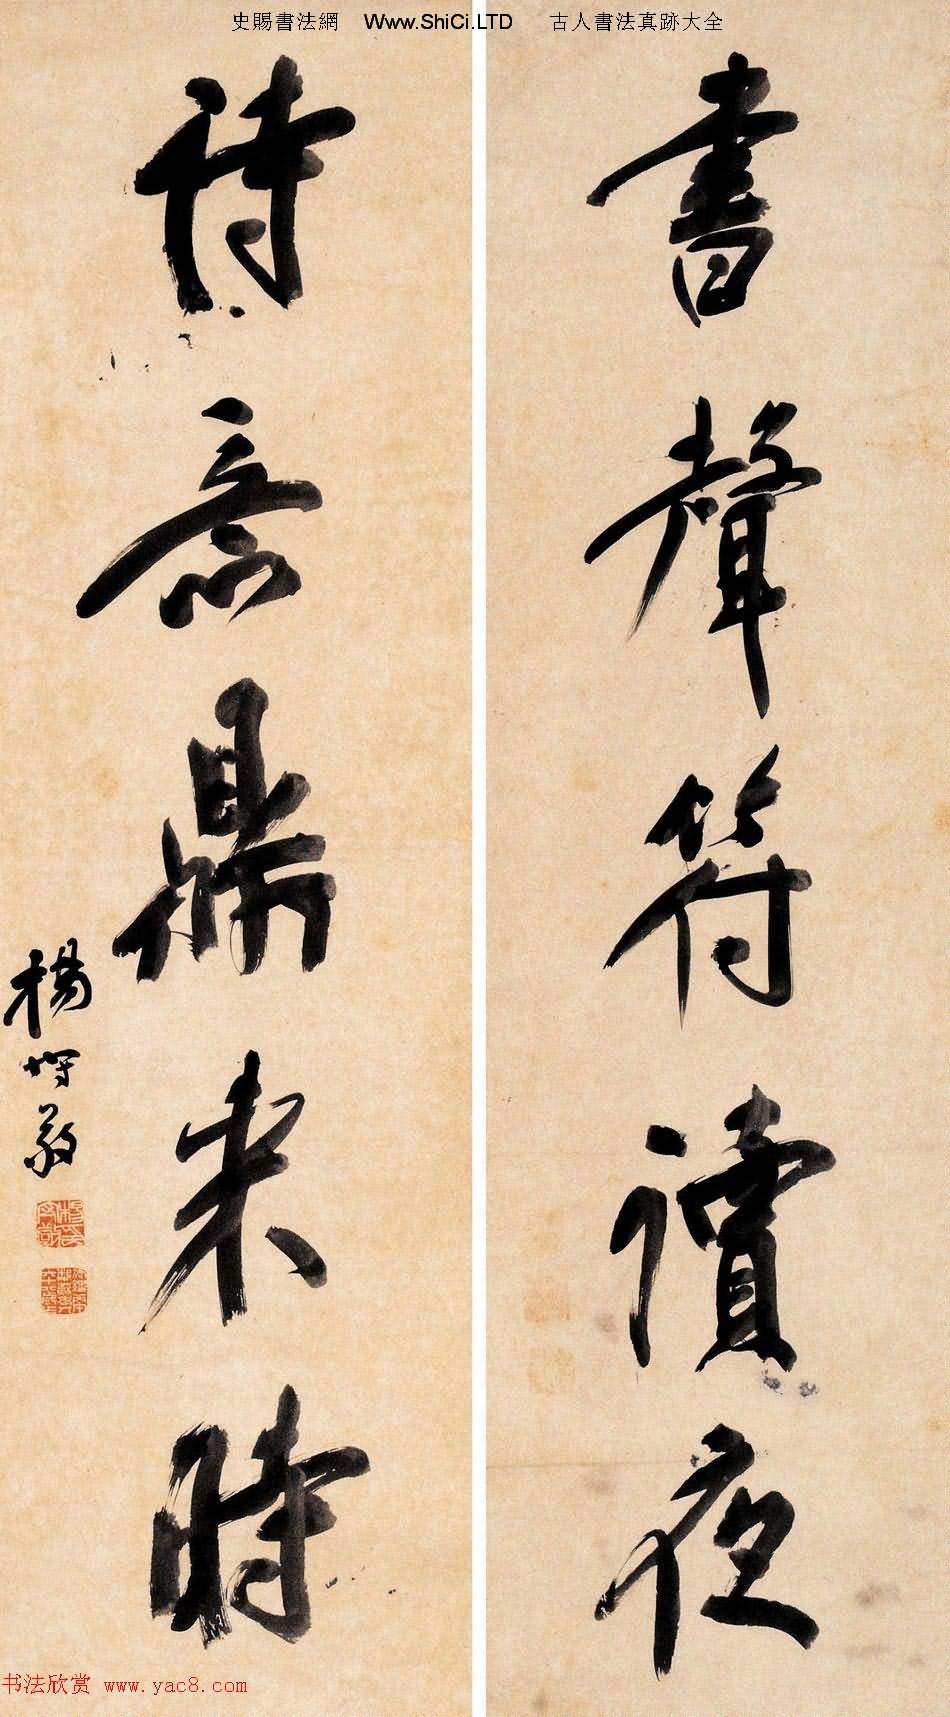 史賜書法網 Www.ShiCi.LTD 古人書法真跡大全
書聲符讀夜
詩意鼎來時
楊守敬
书法欣赏 www.yac8.com